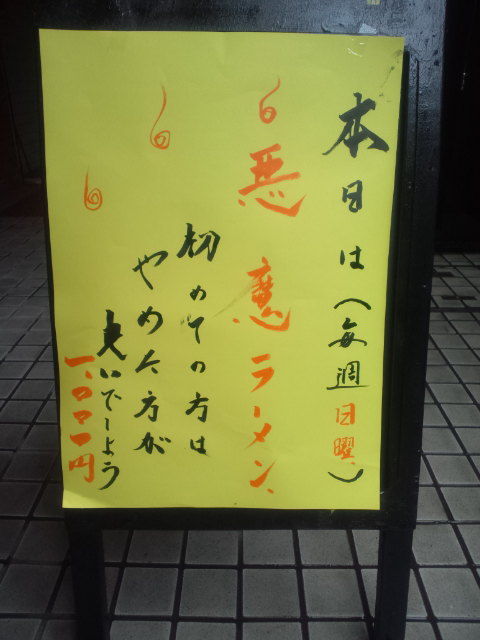 本日は（毎週日曜）
6悪魔ラーメン
6
初めての方は
やめた方が
良いでしょう
6
一、〇〇〇円